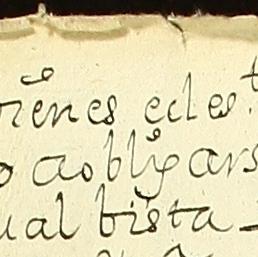 bienes ecles
o aobligars
ual bista